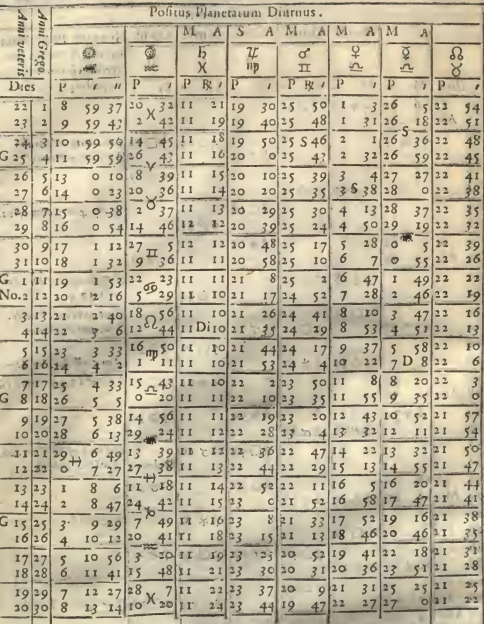 Positus Planetarum Diurnus.
Anni veteris Anni Grego. M A S A M A M A M A
☉ ☽ ♄ ♃ ♂ ♀ ☿ ☊
♓ ♍ ♊ ♎ ♎ ♉
Dies P ′ ″ P ′ P ℞ ′ P ′ P ℞ ′ P ′ P ′ P ′
22 1 8 59 37 20 ♓ 32 11 21 19 30 25 50 1 3 26 5 22 54
23 2 9 59 43 2 42 11 19 19 40 25 48 1 31 26 18 22 51
24 3 10 59 50 14 45 11 18 19 50 25 S 46 2 1 26 36 22 48
G 25 4 11 59 59 26 ♈ 43 11 16 20 0 25 43 2 32 26 59 22 45
26 5 13 0 10 8 39 11 15 20 10 25 39 3 4 27 27 22 41
27 6 14 0 23 20 36 11 14 20 20 25 35 3 S 38 28 0 22 38
28 7 15 0 38 2 ♉ 37 11 13 20 29 25 30 4 13 28 37 22 35
29 8 16 0 54 14 46 12 12 20 39 25 24 4 50 29 19 22 32
30 9 17 1 12 27 ♊ 5 11 12 20 48 25 17 5 28 0 ♏ 5 22 39
31 10 18 1 32 9 36 11 11 20 58 25 10 6 7 0 55 22 26
G 1 11 19 1 53 22 ♋ 23 11 11 21 8 25 2 6 47 1 49 22 22
No. 2 12 20 2 16 5 29 11 10 21 17 24 52 7 28 2 46 22 19
3 13 21 2 40 18 ♌ 56 11 10 21 26 24 41 8 10 3 47 22 16
4 14 22 3 6 12 44 11 Di 10 21 35 24 29 8 53 4 51 22 13
5 15 23 3 33 16 ♍ 50 11 10 21 44 24 17 9 37 5 58 22 10
6 16 24 4 2 1 11 11 10 21 53 24 4 10 22 7 D 8 22 6
7 17 25 4 33 15 ♎ 43 11 10 22 2 23 50 11 8 8 20 22 3
G 8 18 26 5 5 0 20 11 11 22 10 23 35 11 55 9 35 22 0
9 19 27 5 38 14 56 11 11 22 19 23 20 12 43 10 52 21 57
10 20 28 6 13 29 ♏ 24 11 12 22 28 23 4 13 32 12 11 21 54
11 21 29 6 49 13 39 11 12 22 36 22 47 14 22 13 32 21 50
12 22 0 ♐ 7 27 27 38 11 13 22 44 22 29 15 13 14 55 21 47
13 23 1 8 6 11 ♐ 18 11 14 22 52 22 11 16 5 16 20 21 44
14 24 2 8 47 24 42 11 15 23 0 21 52 16 58 17 47 21 41
G 15 25 3 9 29 7 ♑ 49 11 16 23 8 21 33 17 52 19 16 21 38
16 26 4 10 12 20 41 11 18 23 15 21 13 18 46 20 46 21 35
17 27 5 10 56 3 ♒ 20 11 19 23 23 20 52 19 41 22 18 21 31
18 28 6 11 41 15 48 11 21 23 30 20 31 20 36 23 51 21 28
19 29 7 12 27 28 ♓ 7 11 22 23 37 20 9 21 31 25 25 21 25
20 30 8 13 14 10 20 11 24 23 44 19 47 22 27 27 0 21 22